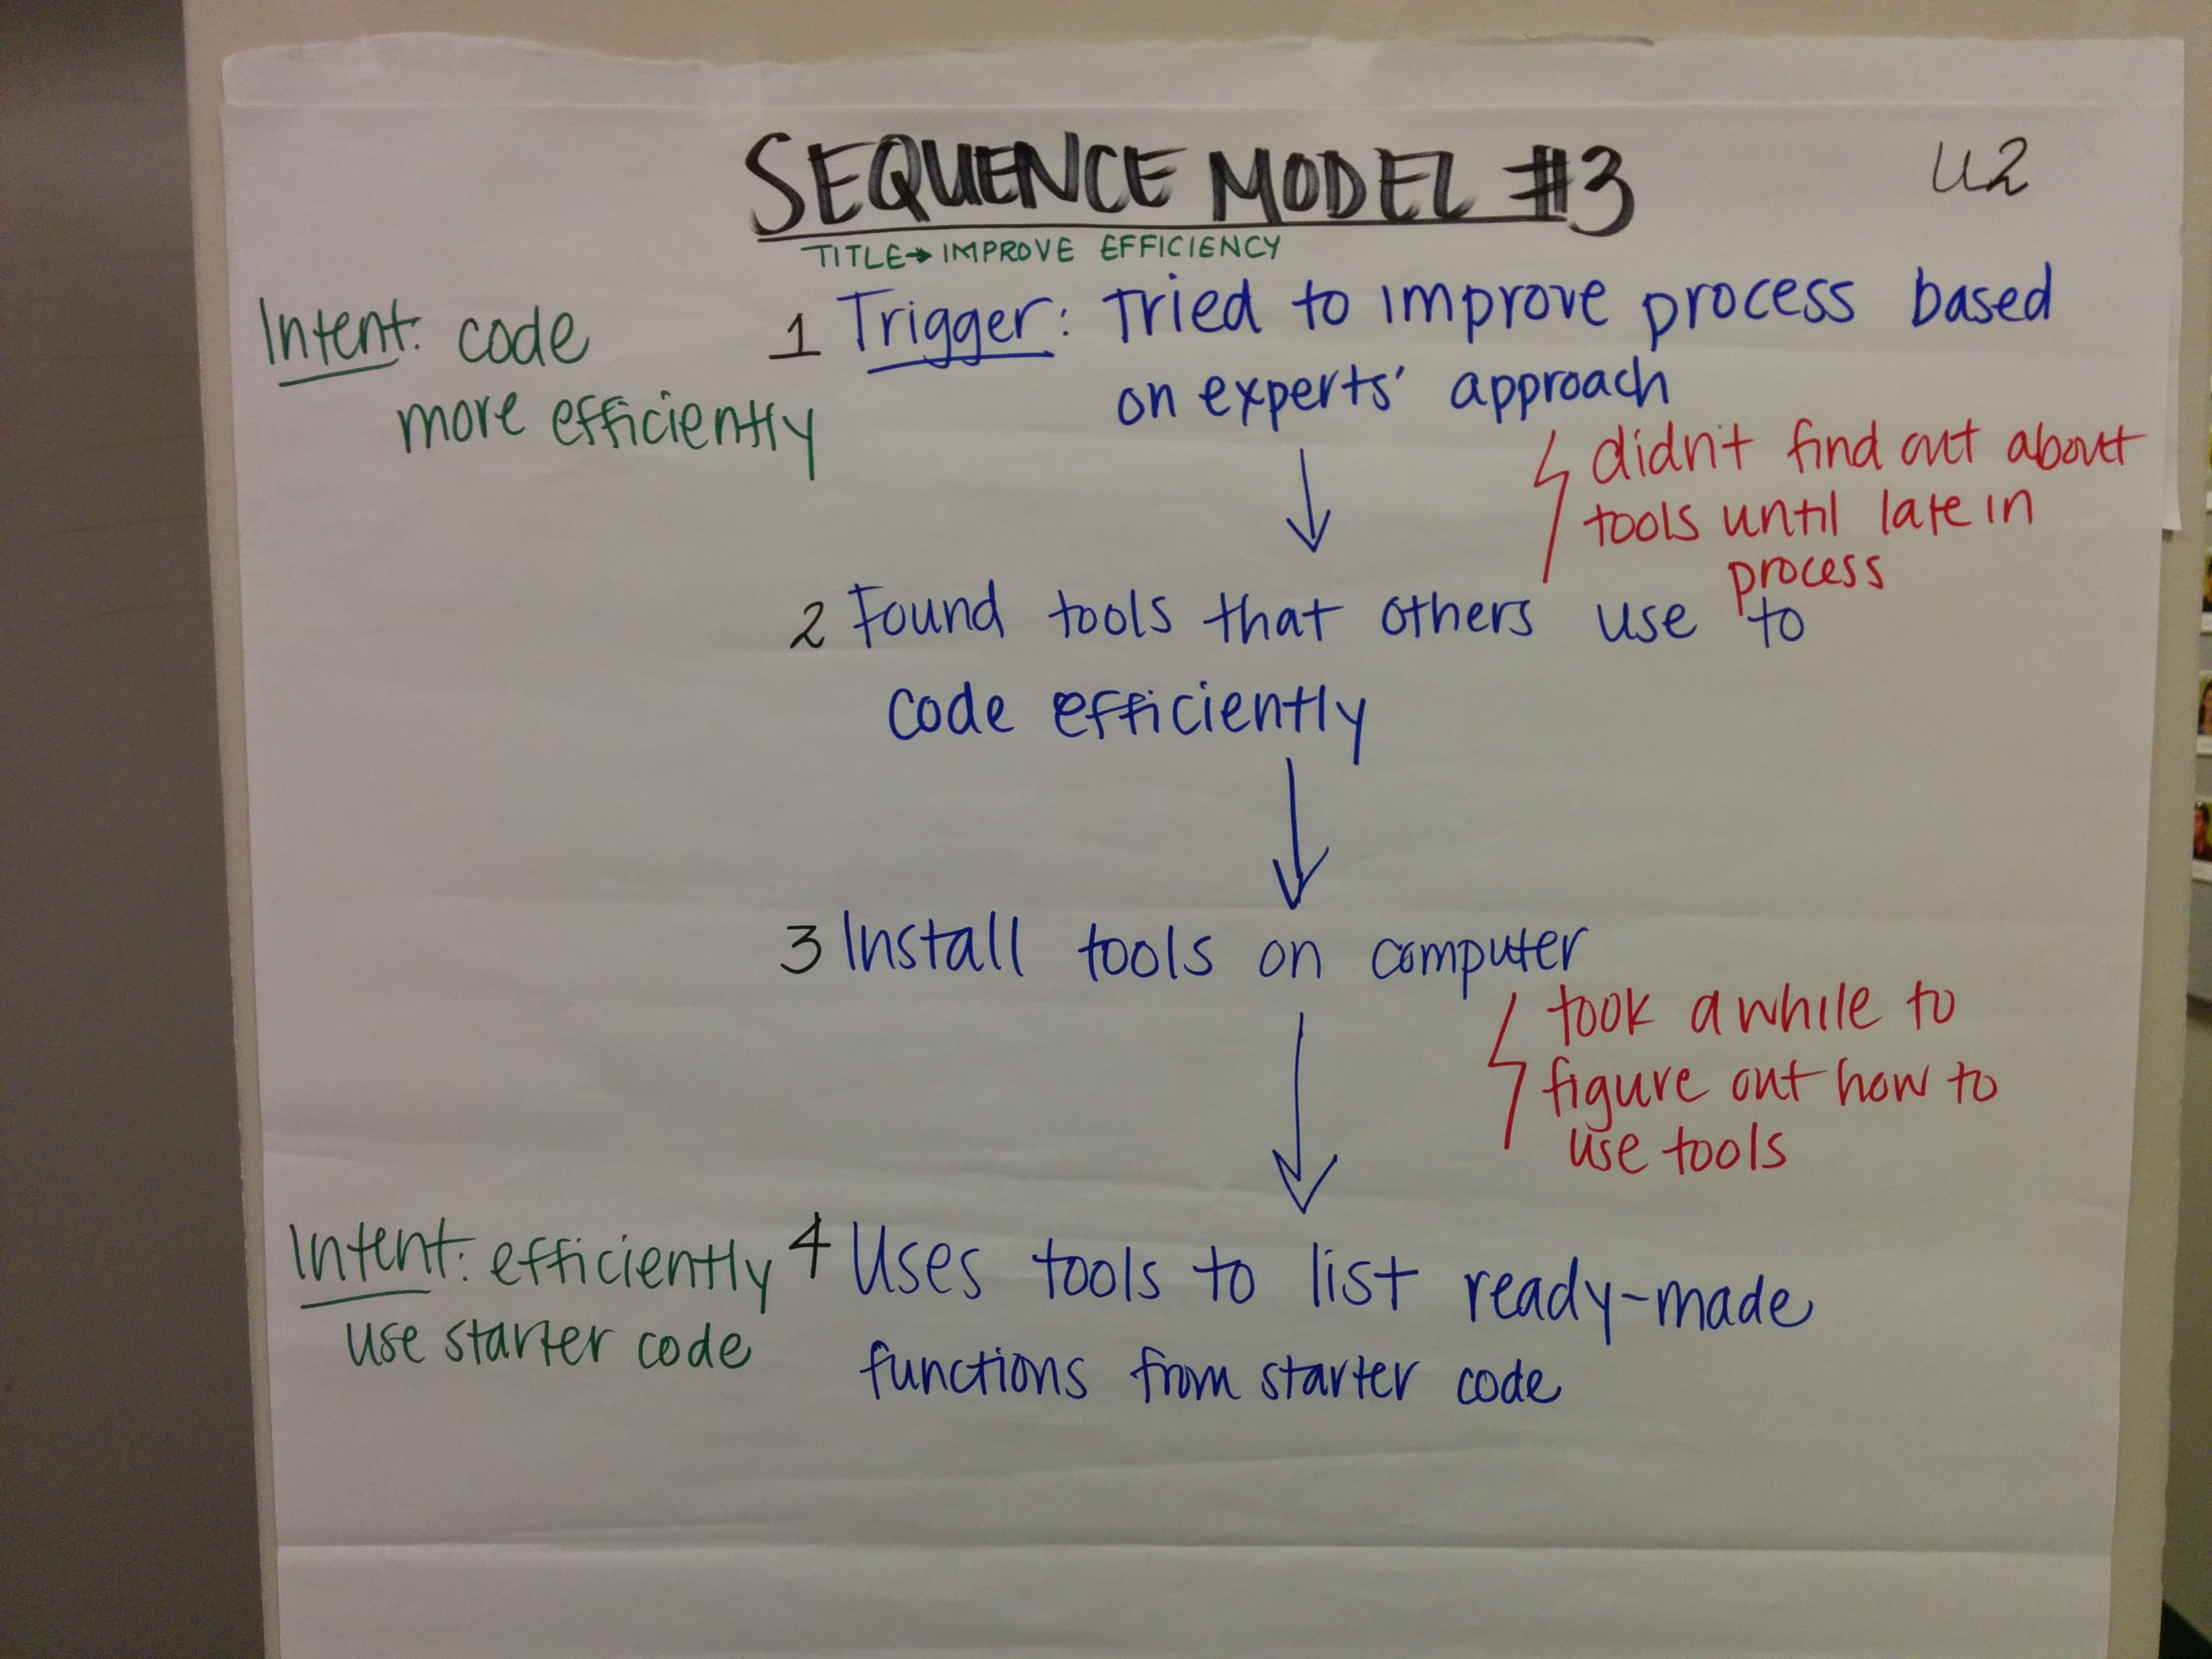 SEQUENCE MODEL #3
U2
TITLE→ IMPROVE EFFICIENCY
Intent: code
more efficiently
1 Trigger: Tried to improve process based
on experts' approach
didn't find out about
tools until late in
process
2 Found tools that others use to
code efficiently
3 Install tools on computer
took a while to
figure out how to
use tools
Intent: efficiently
use starter code
4 Uses tools to list ready-made
functions from starter code